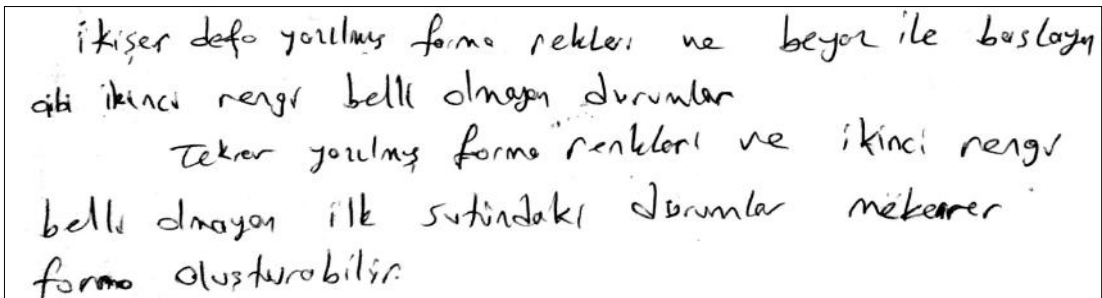 ikişer defa yazılmış forma rekleri ve beyaz ile başlayn
gibi ikinci rengi belli olmayan durumlar
Tekrar yazılmış forma renkleri ve ikinci rengi
belli olmayan ilk sütundaki durumlar mükerrer
forma oluşturabilir.